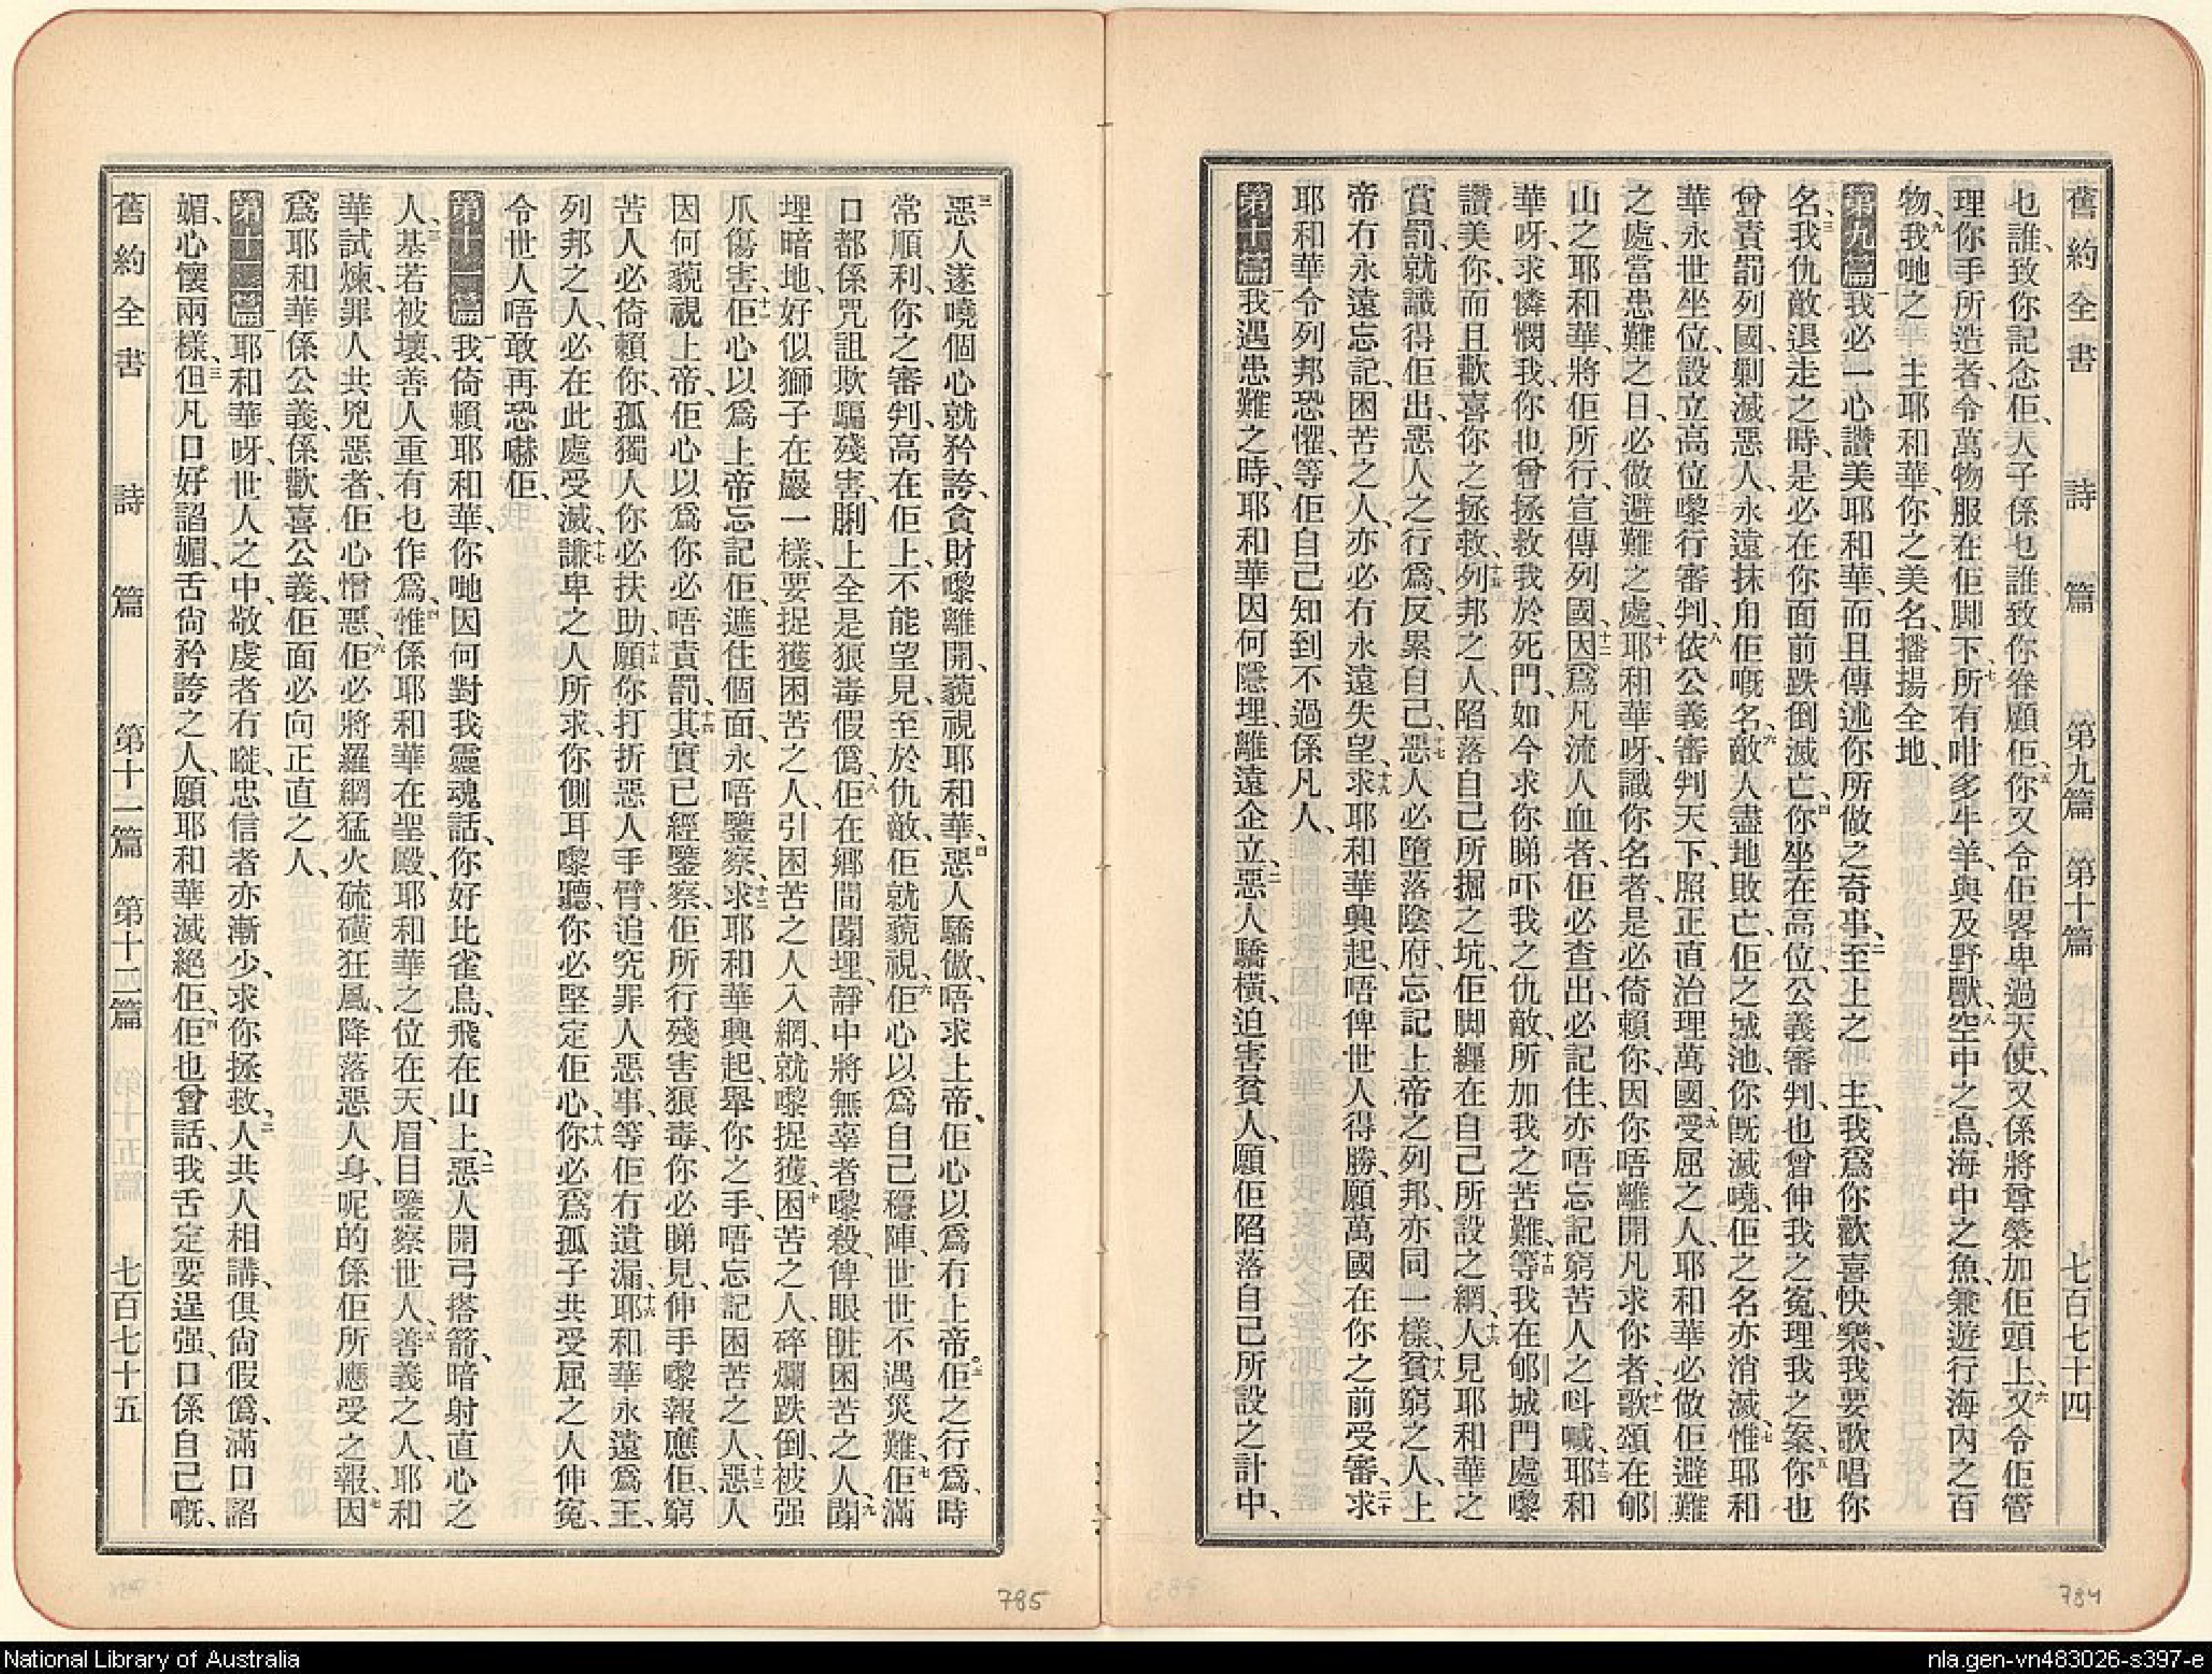 舊約全書 詩篇 第九篇 第十篇 七百七十四
乜誰、致你記念佢、人子係乜誰、致你眷顧佢、五你又令佢畧卑過天使、又係將尊榮加佢頭上、六又令佢管
理你手所造者、令萬物服在佢脚下、七所有咁多牛羊、與及野獸、八空中之鳥、海中之魚、兼遊行海內之百
物、九我哋之 主耶和華、你之美名、播揚全地、
第九篇 一我必一心讚美耶和華、而且傳述你所做之奇事、二至上之 主、我爲你歡喜快樂、我要歌唱你
名、三我仇敵退走之時、是必在你面前跌倒滅亡、四你坐在高位、公義審判、也曾伸我之寃、理我之案、五你也
曾責罰列國、剿滅惡人、永遠抹甪佢嘅名、六敵人盡地敗亡、佢之城池、你既滅嘵、佢之名亦消滅、七惟耶和
華永世坐位、設立高位嚟行審判、八依公義審判天下、照正直治理萬國、九受屈之人、耶和華必做佢避難
之處、當患難之日、必做避難之處、十耶和華呀、識你名者、是必倚賴你、因你唔離開凡求你者、十一歌頌在郇
山之耶和華、將佢所行、宣傳列國、十二因爲凡流人血者、佢必查出、必記住、亦唔忘記窮苦人之呌喊、十三耶和
華呀、求憐憫我、你也曾拯救我於死門、如今求你睇吓我之仇敵、所加我之苦難、十四等我在郇城門處嚟
讚美你、而且歡喜你之拯救、十五列邦之人、陷落自己所掘之坑、佢脚纏在自己所設之網、十六人見耶和華之
賞罰、就識得佢出、惡人之行爲、反累自己、十七惡人必墮落陰府、忘記上帝之列邦、亦同一樣、十八貧窮之人、上
帝冇永遠忘記、困苦之人、亦必冇永遠失望、十九求耶和華興起、唔俾世人得勝、願萬國在你之前受審、二十求
耶和華令列邦恐懼、等佢自己知到不過係凡人、
第十篇 一我遇患難之時、耶和華因何隱埋、離遠企立、二惡人驕橫、迫害貧人、願佢陷落自己所設之計中、
三惡人遂嘵個心就矜誇、貪財嚟離開、藐視耶和華、四惡人驕傲、唔求上帝、佢心以爲冇上帝。五佢之行爲、時
常順利、你之審判、高在佢上、不能望見、至於仇敵、佢就藐視、六佢心以爲自己穩陣、世世不遇災難、七佢滿
口都係咒詛欺騙殘害、脷上全是狠毒假僞、八佢在鄉間匿埋、靜中將無辜者嚟殺、俾眼睚困苦之人、九匿
埋暗地、好似獅子在巖一樣、要捉獲困苦之人、引困苦之人入網、就嚟捉獲、十困苦之人、碎爛跌倒、被强
爪傷害、十一佢心以爲上帝忘記佢、遮住個面、永唔鑒察、十二求耶和華興起、舉你之手、唔忘記困苦之人、十三惡人
因何藐視上帝、佢心以爲你必唔責罰、十四其實已經鑒察、佢所行殘害狠毒、你必睇見、伸手嚟報應佢、窮
苦人必倚賴你、孤獨人你必扶助、十五願你打折惡人手臂、追究罪人惡事、等佢冇遺漏、十六耶和華永遠爲王、
列邦之人、必在此處受滅、十七謙卑之人所求、你側耳嚟聽、你必堅定佢心、十八你必爲孤子共受屈之人伸寃、
令世人唔敢再恐嚇佢、
第十一篇 一我倚賴耶和華、你哋因何對我靈魂話、你好比雀鳥、飛在山上、二惡人開弓搭箭、暗射直心之
人、三基若被壞、善人重有乜作爲、四惟係耶和華在聖殿、耶和華之位在天、眉目鑒察世人、五善義之人、耶和
華試煉、罪人共兇惡者、佢心憎惡、六佢必將羅網猛火硫磺狂風、降落惡人身、呢的係佢所應受之報、七因
爲耶和華係公義、係歡喜公義、佢面必向正直之人、
第十二篇 一耶和華呀、世人之中、敬虔者冇嘥、忠信者亦漸少、求你拯救、二人共人相講、俱尙假僞、滿口諂
媚、心懷兩樣、三但凡口好諂媚、舌尙矜誇之人、願耶和華滅絕佢、四佢也曾話、我舌定要逞强、口係自己嘅、
舊約全書 詩篇 第十一篇 第十二篇 七百七十五
785
784
National Library of Australia
nla.gen-vn483026-s397-e